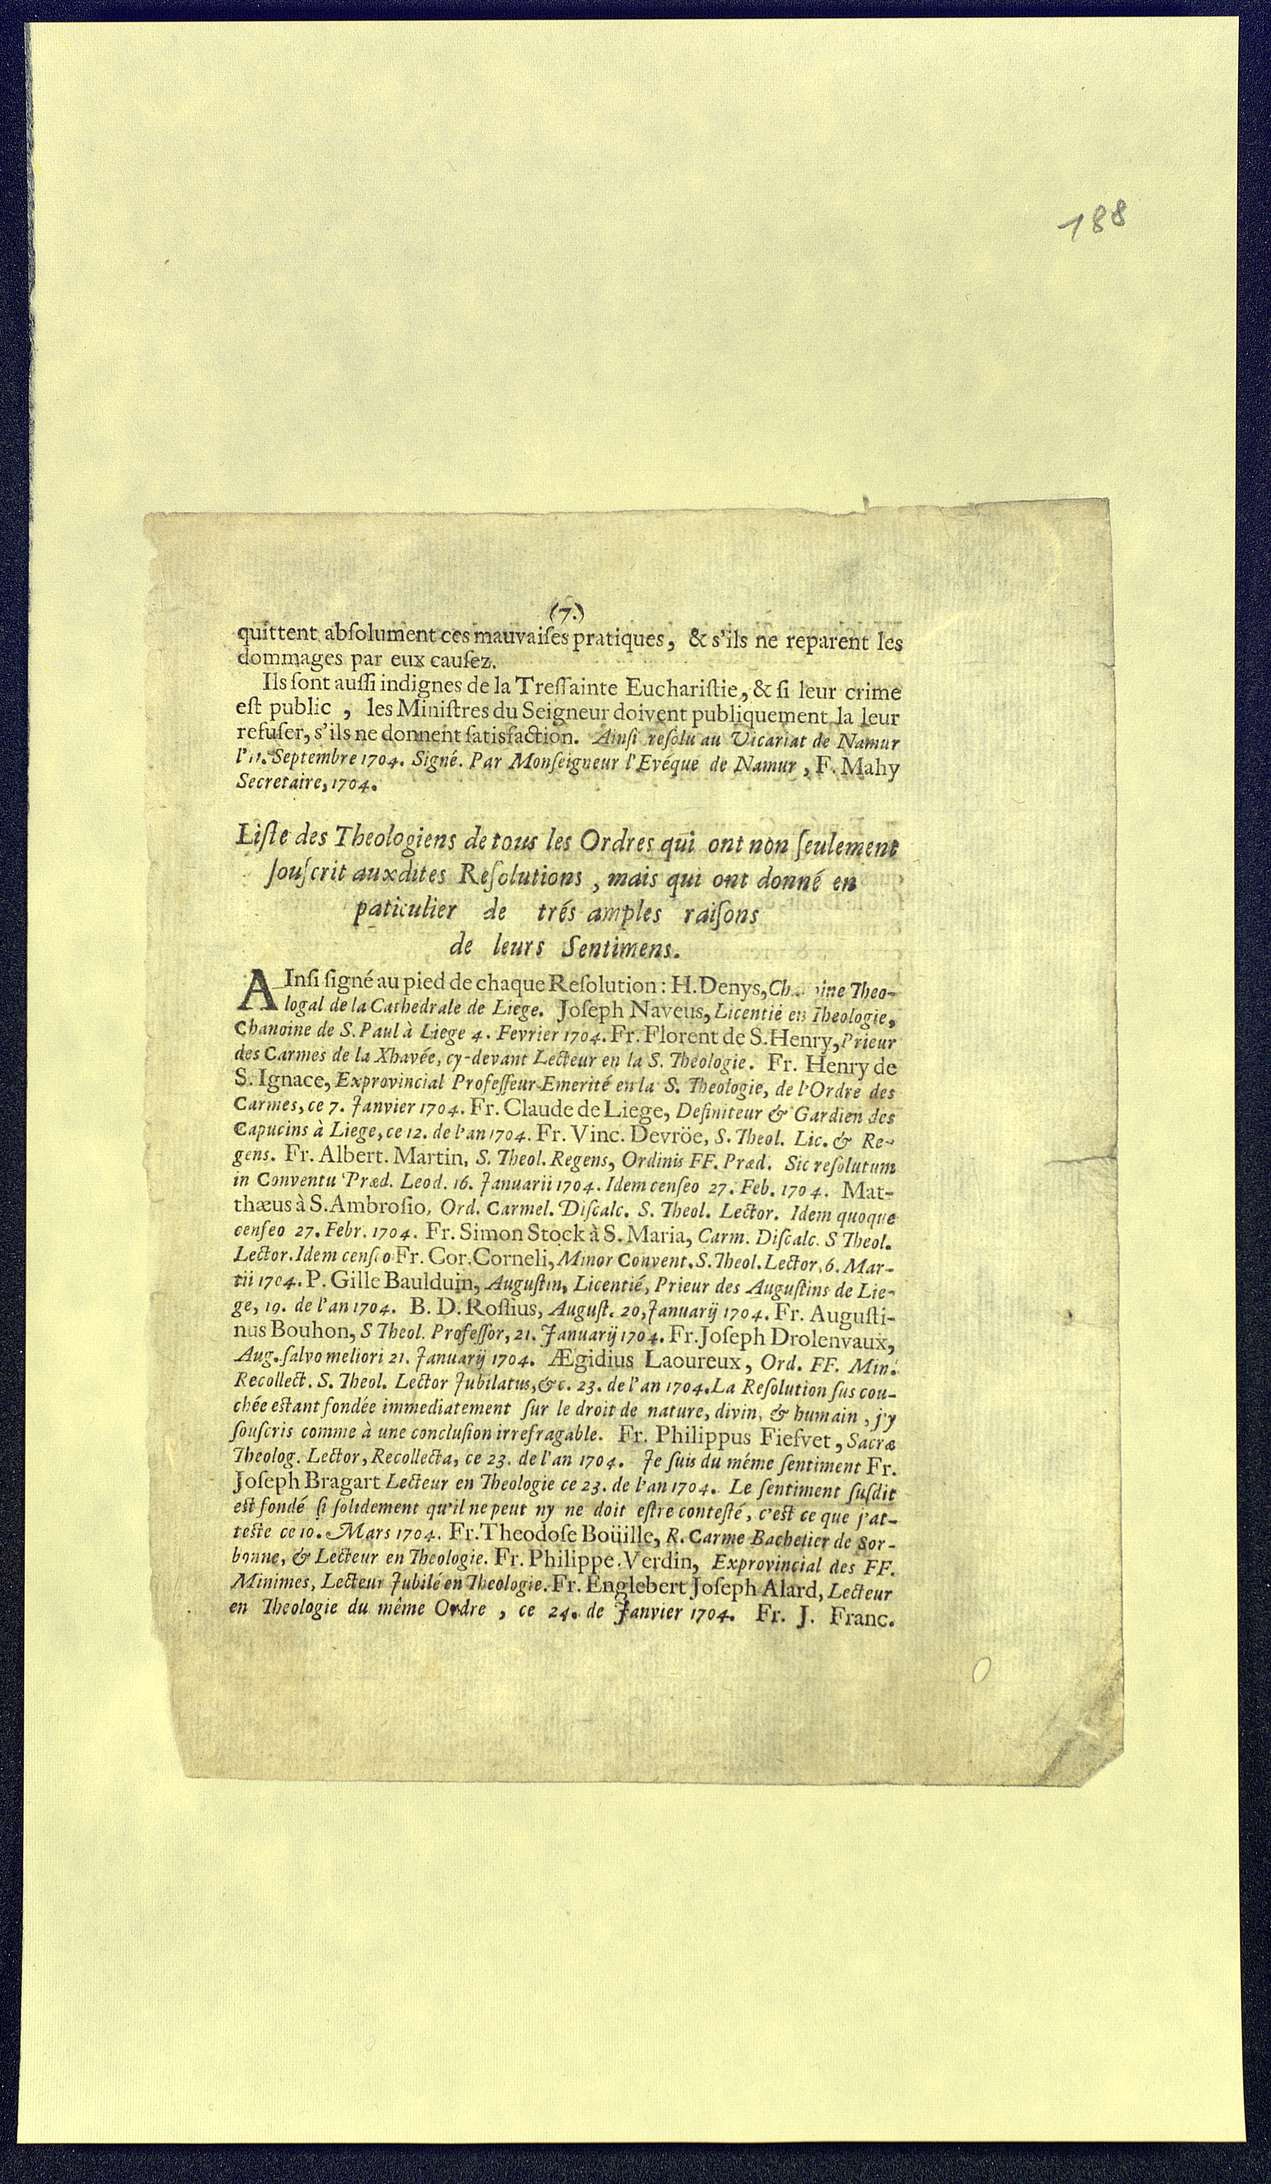 188
(7.)
quittent absolument ces mauvaises pratiques, & s'ils ne reparent les
dommages par eux causez.
Ils sont aussi indignes de la Tressainte Eucharistie, & si leur crime
est public , les Ministres du Seigneur doivent publiquement la leur
refuser, s'ils ne donnent satisfaction. Ainsi resolu au Vicariat de Namur
l'11. Septembre 1704. Signé. Par Monseigneur l'Evéque de Namur, F. Mahy
Secretaire, 1704.
Liste des Theologiens de tous les Ordres qui ont non seulement
souscrit auxdites Resolutions, mais qui ont donné en
paticulier de trés amples raisons
de leurs Sentimens.
AInsi signé au pied de chaque Resolution : H. Denys, Ch ine Theo-
logal de la Cathedrale de Liege. Joseph Naveus, Licentié en Theologie,
Chanoine de S. Paul à Liege 4. Fevrier 1704. Fr. Florent de S. Henry, Prieur
des Carmes de la Xhavée, cy-devant Lecteur en la S. Theologie. Fr. Henry de
S. Ignace, Exprovincial Professeur Emerité en la S. Theologie, de l'Ordre des
Carmes, ce 7. Janvier 1704. Fr. Claude de Liege, Definiteur & Gardien des
Capucins à Liege, ce 12. de l'an 1704. Fr. Vinc. Devröe, S. Theol. Lic. & Re-
gens. Fr. Albert. Martin, S. Theol. Regens, Ordinis FF. Præd. Sic resolutum
in Conventu Præd. Leod. 16. Januarii 1704. Idem censeo 27. Feb. 1704. Mat-
thæus à S. Ambrosio, Ord. Carmel. Discalc. S. Theol. Lector. Idem quoque
censeo 27. Febr. 1704. Fr. Simon Stock à S. Maria, Carm. Discalc. S Theol.
Lector. Idem censeo Fr. Cor. Corneli, Minor Convent. S. Theol. Lector, 6. Mar-
tii 1704. P. Gille Baulduin, Augustin, Licentié, Prieur des Augustins de Lie-
ge, 19. de l'an 1704. B. D. Rostius, August. 20, Januarij 1704. Fr. Augusti-
nus Bouhon, S Theol. Professor, 21. Januarij 1704. Fr. Joseph Drolenvaux,
Aug. salvo meliori 21. Januarij 1704. Ægidius Laoureux, Ord. FF. Min.
Recollect. S. Theol. Lector Jubilatus, &c. 23. de l'an 1704. La Resolution sus cou-
chée estant fondée immediatement sur le droit de nature, divin, & humain, j'y
souscris comme à une conclusion irrefragable. Fr. Philippus Fiesvet, Sacræ
Theolog. Lector, Recollecta, ce 23. de l'an 1704. Je suis du méme sentiment Fr.
Joseph Bragart Lecteur en Theologie ce 23. de l'an 1704. Le sentiment susdit
est fondé si solidement qu'il ne peut ny ne doit estre contesté, c'est ce que j'at-
teste ce 10. Mars 1704. Fr. Theodose Boüille, R. Carme Bachelier de Sor-
bonne, & Lecteur en Theologie. Fr. Philippe Verdin, Exprovincial des FF.
Minimes, Lecteur Jubilé en Theologie. Fr. Englebert Joseph Alard, Lecteur
en Theologie du même Ordre , ce 24. de Janvier 1704. Fr. J. Franc.